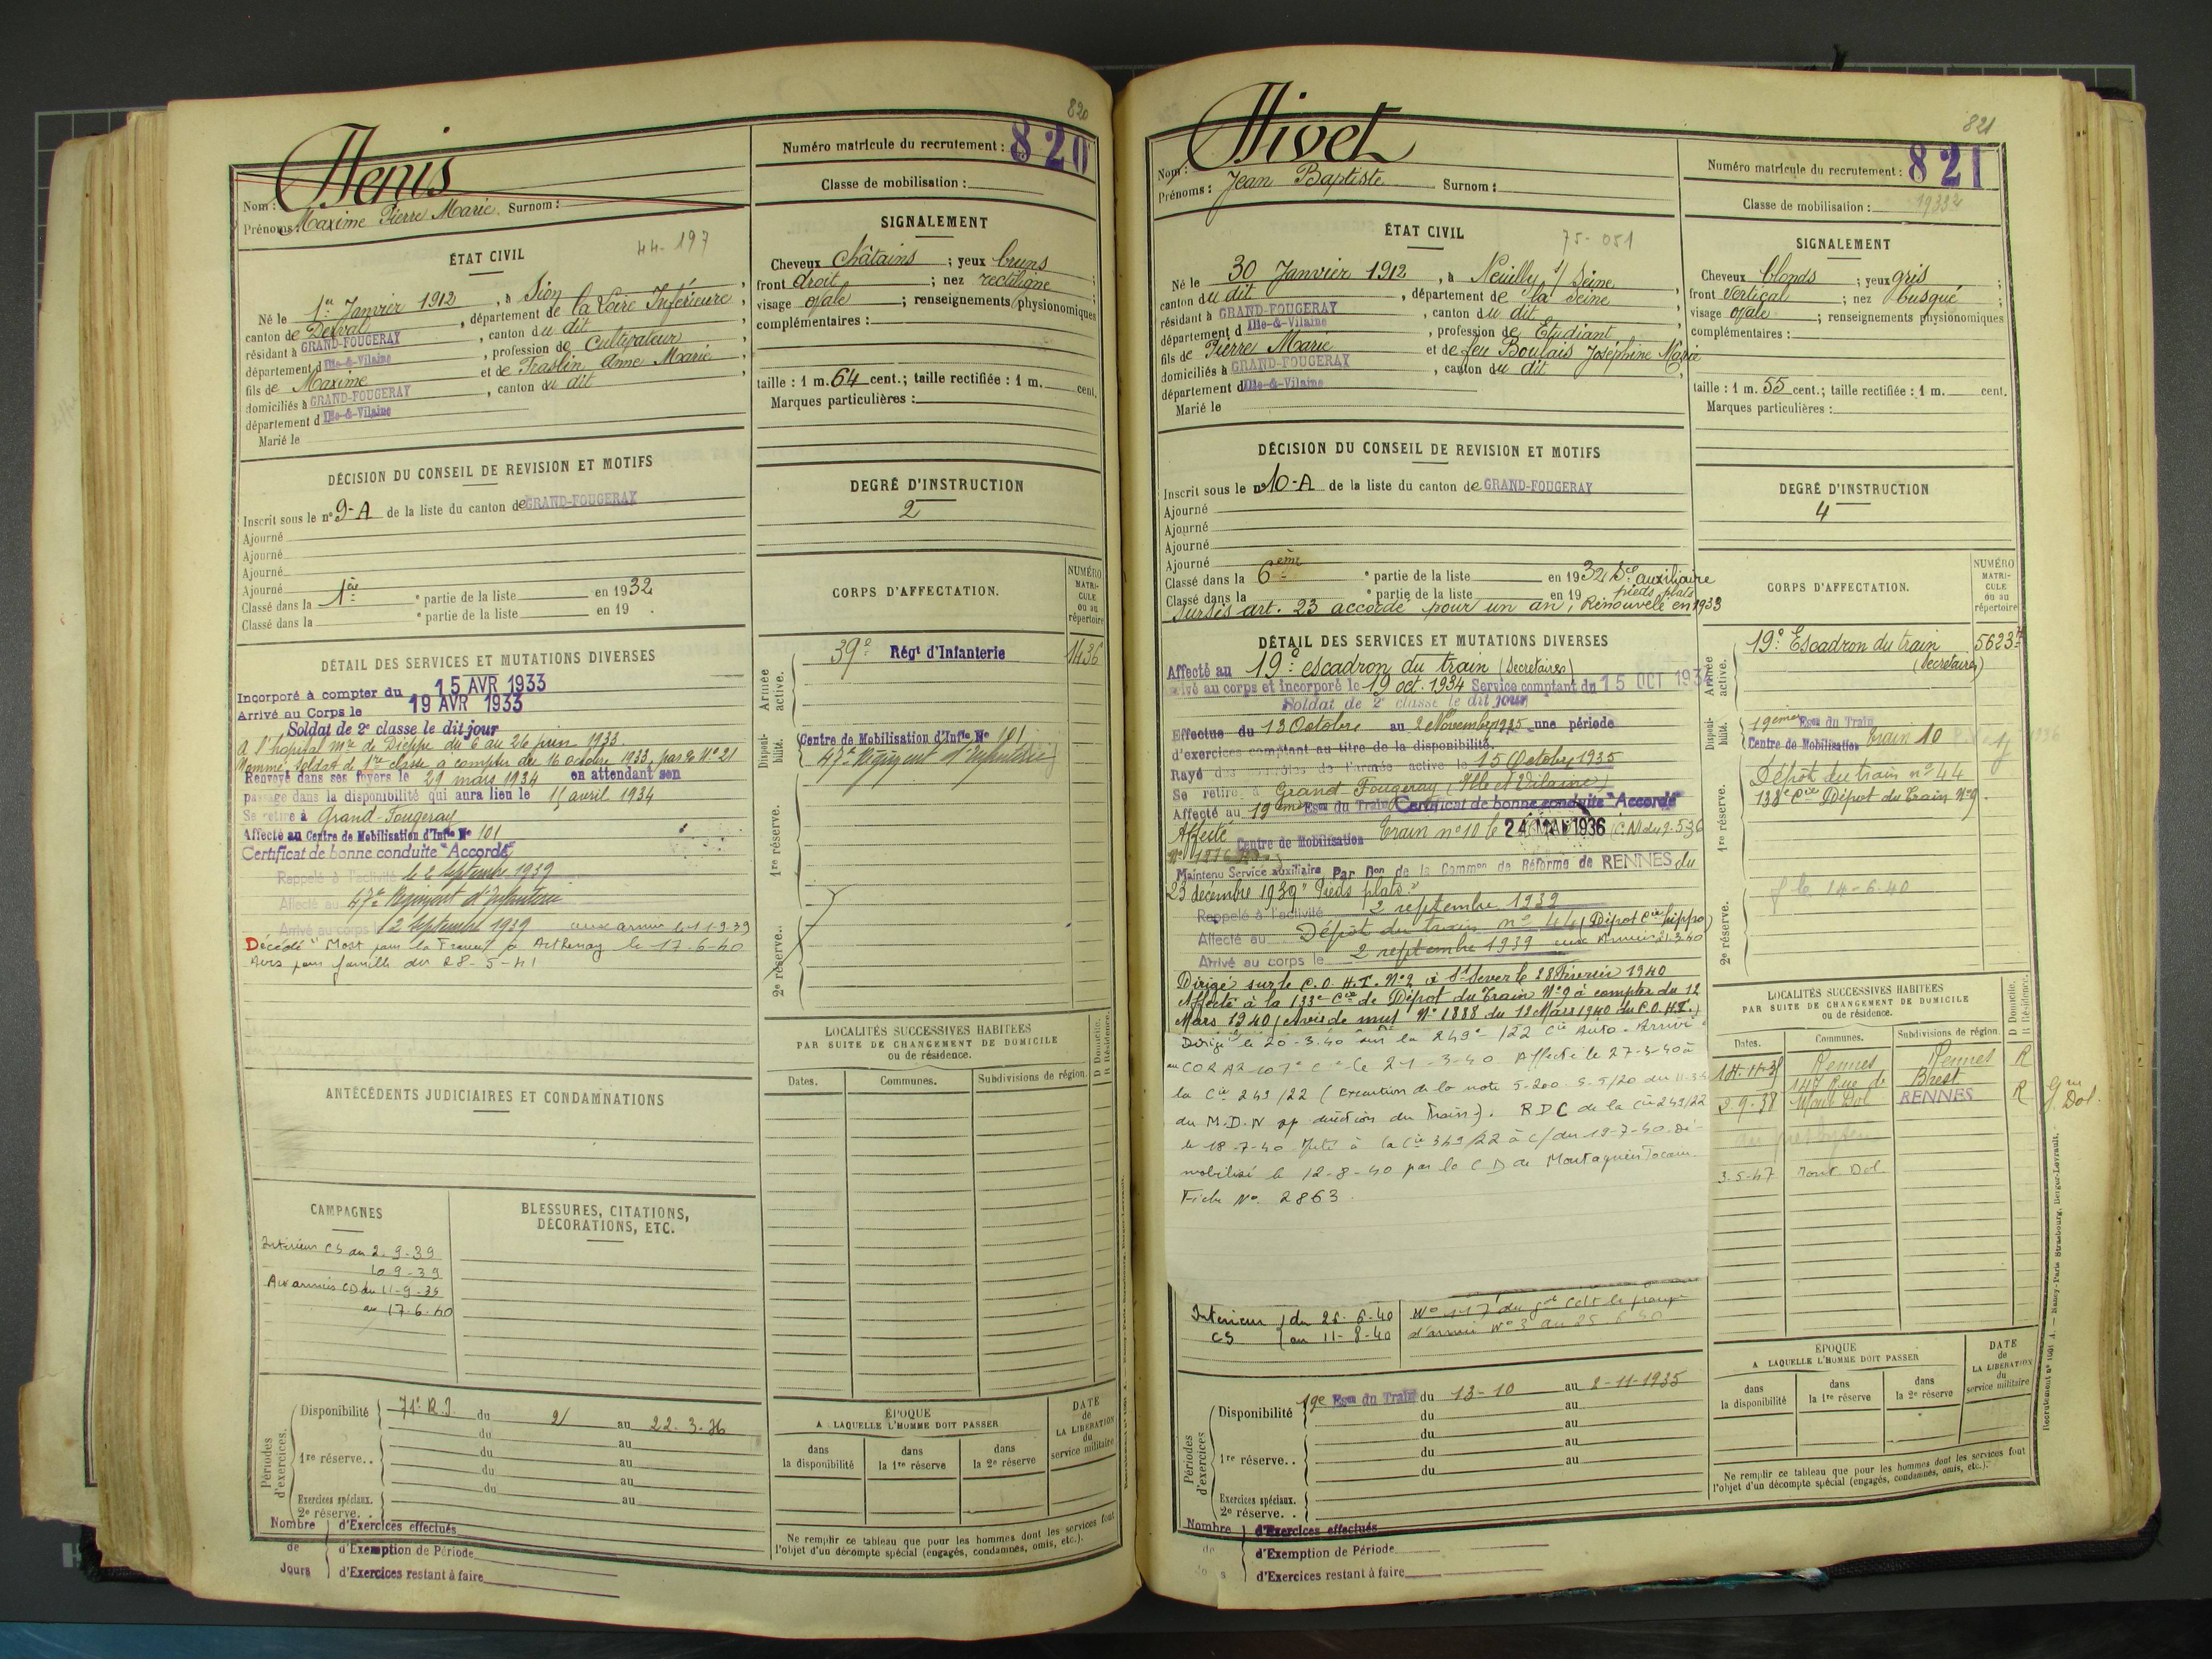 820
Henis
Nom :
Prénoms : Maxime Pierre Marie. Surnom :
Numéro matricule du recrutement : 820
Classe de mobilisation :
ÉTAT CIVIL
44-197
Né le 1er Janvier 1912, à Sion
canton de Derval, département de la Loire Inférieure,
résidant à GRAND-FOUGERAY, canton du dit,
département d Ille-&-Vilaine, profession de Cultivateur
fils de Maxime et de Fraslin Anne Marie,
domiciliés à GRAND-FOUGERAY, canton du dit,
département d Ille-&-Vilaine
Marié le
SIGNALEMENT
Cheveux châtains ; yeux bruns ;
front droit ; nez rectiligne ;
visage ovale ; renseignements physionomiques
complémentaires :
taille : 1 m. 64 cent.; taille rectifiée : 1 m. cent.
Marques particulières :
DÉCISION DU CONSEIL DE REVISION ET MOTIFS
Inscrit sous le n° 9-A de la liste du canton de GRAND-FOUGERAY
Ajourné
Ajourné
Ajourné
Ajourné
Classé dans la 1ère e partie de la liste en 1932
Classé dans la e partie de la liste en 19 .
DEGRÉ D'INSTRUCTION
2
DÉTAIL DES SERVICES ET MUTATIONS DIVERSES
Incorporé à compter du 15 AVR 1933
Arrivé au Corps le 19 AVR 1933
Soldat de 2e classe le dit jour
A l'hopital mre de Dieppe du 6 au 26 juin 1933.
Nommé soldat de 1re classe à compter du 16 octobre 1933, par N° 21
Renvoyé dans ses foyers le 29 mars 1934 en attendant son
passage dans la disponibilité qui aura lieu le 15 avril 1934
Se retire à Grand-Fougeray
Affecté au Centre de Mobilisation d'Infie N° 101
Certificat de bonne conduite "Accordé"
Rappelé à l'activité le 2 Septembre 1939
Affecté au 47e Régiment d'Infanterie
Arrivé au corps le 2 Septembre 1939 aux armées le 11.9.39
Décédé "Mort pour la France" à Arthenay le 17.6.40
Avis pour famille du 28-5-41
CORPS D'AFFECTATION.
NUMÉRO MATRI-CULE ou au répertoire
Armée active.
39e Régt d'Infanterie 1436
Disponi-bilité.
Centre de Mobilisation d'Infie N° 101
47e Régiment d'Infanterie
1re réserve.
2e réserve..
ANTÉCÉDENTS JUDICIAIRES ET CONDAMNATIONS
LOCALITÉS SUCCESSIVES HABITÉES
PAR SUITE DE CHANGEMENT DE DOMICILE
ou de résidence.
D Domicile.
R Résidence.
Dates. Communes. Subdivisions de région.
CAMPAGNES
Intérieur CS du 2.9.39
10 9-39
Aux armées CD du 11-9-39
au 17-6.40
BLESSURES, CITATIONS,
DÉCORATIONS, ETC.
Périodes d'exercices.
Disponibilité 71e R.I. du 2 au 22.3.36
du au
1re réserve.. du au
du au
du au
Exercices spéciaux.
2e réserve. . au
Nombre de Jours
d'Exercices effectués
d'Exemption de Période
d'Exercices restant à faire
ÉPOQUE
A LAQUELLE L'HOMME DOIT PASSER
dans la disponibilité
dans la 1re réserve
dans la 2e réserve
DATE de LA LIBÉRATION du service militaire
Ne remplir ce tableau que pour les hommes dont les services font
l'objet d'un décompte spécial (engagés, condamnés, omis, etc.).
821
Hivet
Nom :
Prénoms : Jean Baptiste Surnom :
Numéro matricule du recrutement : 821
Classe de mobilisation :
ÉTAT CIVIL
75-051
Né le 30 Janvier 1912, à Neuilly s/ Seine
canton du dit, département de la Seine,
résidant à GRAND-FOUGERAY, canton du dit,
département d Ille-&-Vilaine, profession de Etudiant
fils de Pierre Marie et de feu Boulais Joséphine Marie
domiciliés à GRAND-FOUGERAY, canton du dit,
département d Ille-&-Vilaine
Marié le
SIGNALEMENT
Cheveux blonds ; yeux gris ;
front vertical ; nez busqué ;
visage ovale ; renseignements physionomiques
complémentaires :
taille : 1 m. 55 cent.; taille rectifiée : 1 m. cent.
Marques particulières :
DÉCISION DU CONSEIL DE REVISION ET MOTIFS
Inscrit sous le n° 10-A de la liste du canton de GRAND-FOUGERAY
Ajourné
Ajourné
Ajourné
Ajourné
Classé dans la 6ème e partie de la liste en 1932 Sce auxiliaire
Classé dans la e partie de la liste en 19 pieds plats
Sursis art. 23 accordé pour un an, Renouvelé en 1933
DEGRÉ D'INSTRUCTION
4
DÉTAIL DES SERVICES ET MUTATIONS DIVERSES
Affecté au 19e escadron du train (Secrétaires)
Arrivé au corps et incorporé le 19 oct. 1934 Service comptant du 15 OCT 1934
Soldat de 2e classe le dit jour
Effectue du 13 Octobre au 2 Novembre 1935 une période
d'exercices comptant au titre de la disponibilité.
Rayé des contrôles de l'armée active le 15 Octobre 1935
Se retire à Grand Fougeray (Ille et Vilaine)
Affecté au 19ème Eson du Train Certificat de bonne conduite "Accordé"
Affecté Centre de Mobilisation Train n° 10 le 24 MAI 1936
Maintenu Service auxiliaire Par Don de la Common de Réforme de RENNES du
23 décembre 1939 "Pieds plats."
Rappelé à l'activité 2 septembre 1939
Affecté au Dépôt du train n° 44 (Dépot Cie hippo)
Arrivé au corps le 2 septembre 1939 aux Armées 21.3.40
Dirigé sur le C.O.H.T. N°2 à St Sever le 28 Février 1940
Affecté à la 133e Cie de Dépot du Train N°9 à compter du 12
Mars 1940 (Avis de mut N° 1888 du 12 Mars 1940 du C.O.H.T.)
Dirigé le 20-3.40 sur la 249e-/22 Cie Auto. Arrivé
au CORA2 107e Cie le 21-3-40 Affecté le 27-3-40 à
la Cie 249/22 (Exécution de la note 5-200-S-5/20 du
du M.D.N op direction du Train). RDC de la Cie 249/22
le 18-7-40 à la Cie 349/22 à c/ du 19-7-40. Dé-
mobilisé le 12-8-40 par le CD de Montagnier Tocane
Fiche N° 2863.
CORPS D'AFFECTATION.
NUMÉRO MATRI-CULE ou au répertoire
Armée active.
19e Escadron du train 5623
(Secrétaires)
Disponi-bilité.
19ème Eson du Train
Centre de Mobilisation Train 10
1re réserve.
Dépôt du train n° 44
133e Cie Dépot du Train N°9
2e réserve.
14-6-40
LOCALITÉS SUCCESSIVES HABITÉES
PAR SUITE DE CHANGEMENT DE DOMICILE
ou de résidence.
D Domicile.
R Résidence.
Dates. Communes. Subdivisions de région.
Rennes Rennes R
147 Rue de Brest
2-9-38 Mont Dol RENNES R
3-5-47 Mont Dol
Intérieur du 25-6-40
CS au 11-8-40
Périodes d'exercices
Disponibilité 19e Eson du Train du 13-10 au 2-11-1935
du au
du au
1re réserve.. du au
du
Exercices spéciaux.
2e réserve. .
Nombre
d'Exercices effectués
d'Exemption de Période
d'Exercices restant à faire
ÉPOQUE
A LAQUELLE L'HOMME DOIT PASSER
dans la disponibilité
dans la 1re réserve
dans la 2e réserve
DATE de LA LIBÉRATION du service militaire
Ne remplir ce tableau que pour les hommes dont les services font
l'objet d'un décompte spécial (engagés, condamnés, omis, etc.).